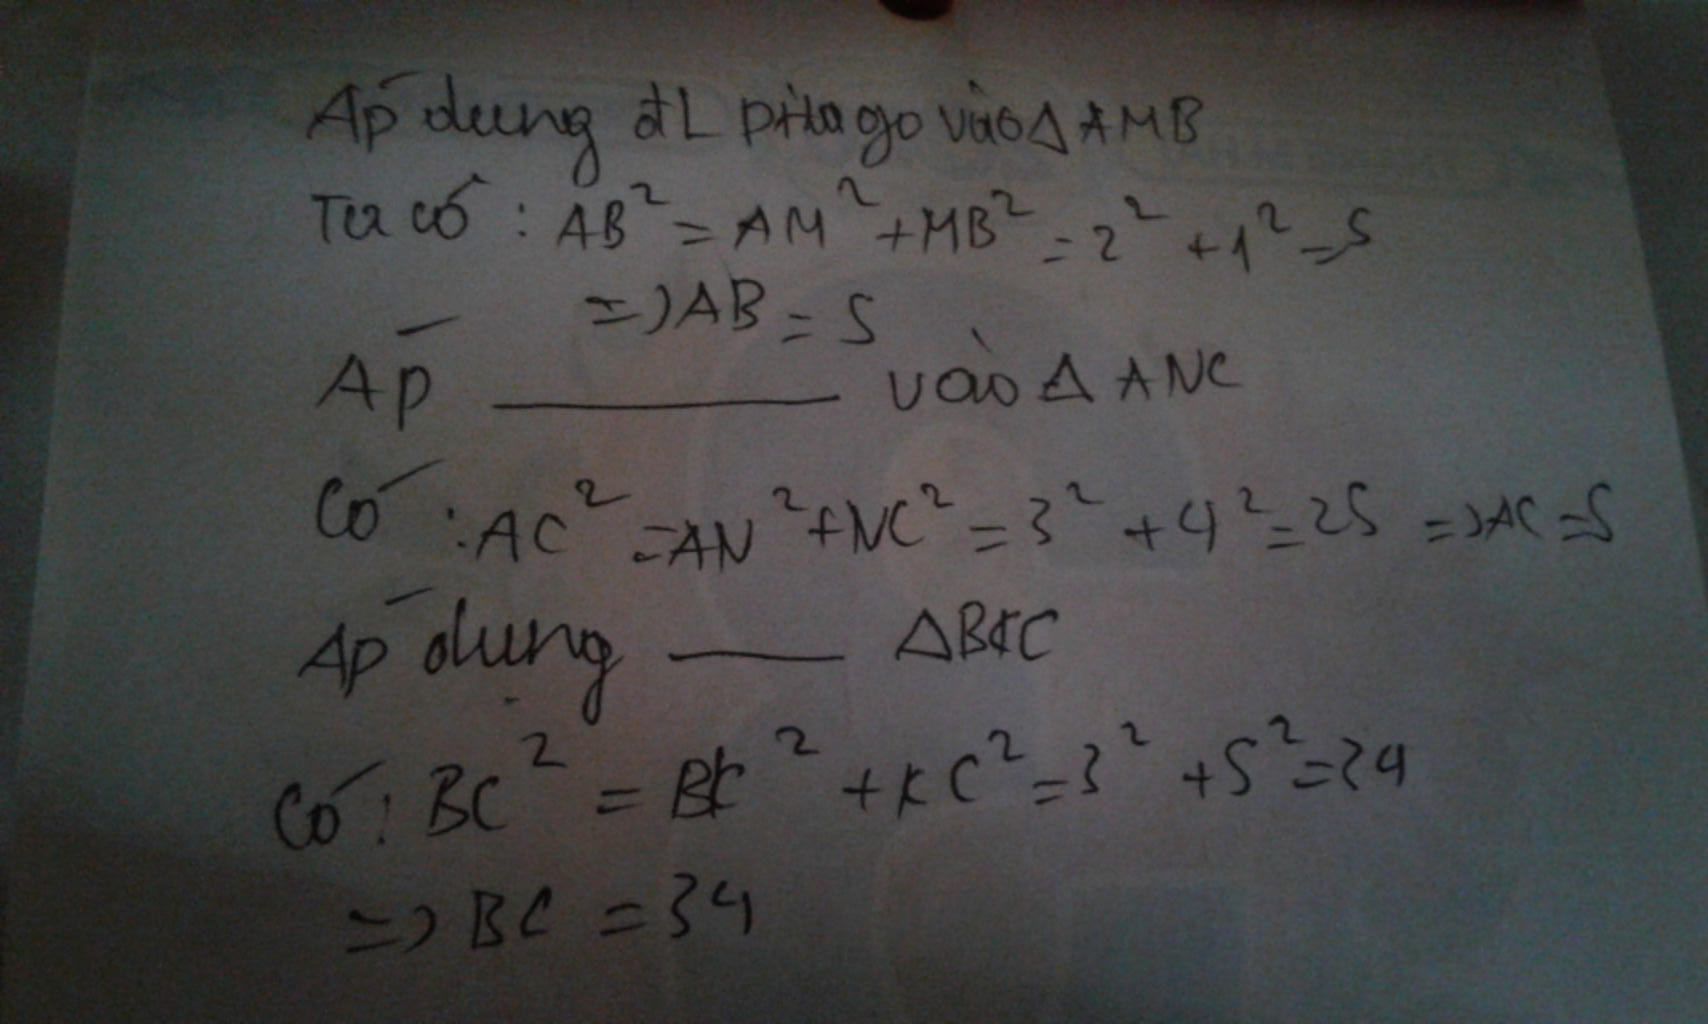 Áp dụng đL pitago vào Δ AMB
Ta có : AB² = AM² + MB² = 2² + 1² = 5
=> AB = 5
Áp ______ vào Δ ANC
Có : AC² = AN² + NC² = 3² + 4² = 25 => AC = 5
Áp dụng ____ ΔBKC
Có : BC² = BK² + KC² = 3² + 5² = 34
=> BC = 34